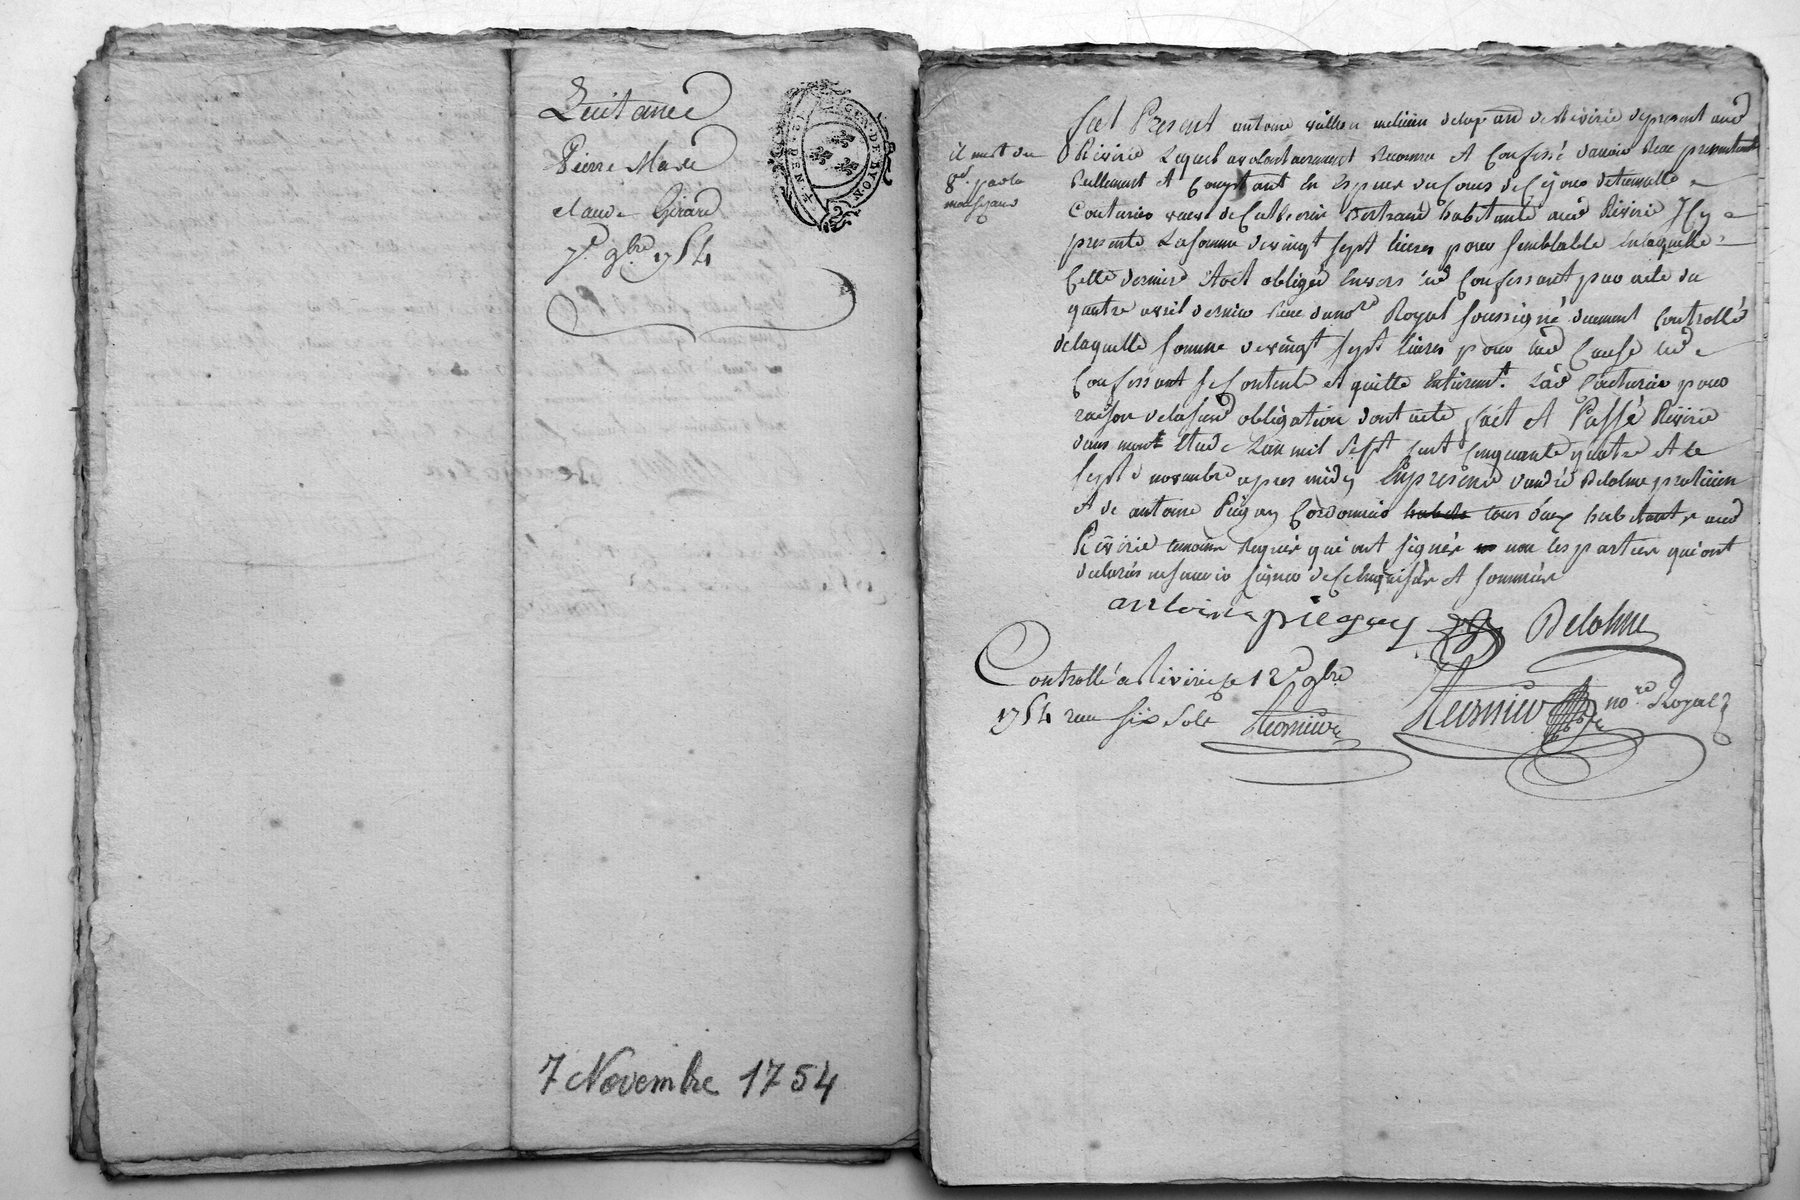 Quitance
Pierre Marie
claude Girard
7e 9bre 1754
GEN. DE LYON
7 Novembre 1754
il n'est du
8d par la
Fut Présent antoine
Rivirie Lequel a volontairement Reconnu et Confessé d'avoir Reçu présentement
Réellement et Comptant En Espèces du Cours de Ce jour
Couturier veuve de Catherine Bertrand habitante aud Rivirie Icy
présente La somme de vingt sept livres pour semblable En laquelle
Cette dernière étoit obligée Envers led Confessant par acte du
quatre avril dernier Reçu du nore Royal soussigné duement Controllé
de laquelle somme de vingt sept livres pour lad Cause led
Confessant se Contente et quitte Entièremt. Lad Couturier pour
raison de la susd obligation dont acte fait et Passé Rivirie
dans nont étude L'an mil sept cent Cinquante quatre et le
sept novembre après midy En présence d'andré Delolme praticien
et de antoine Piégay Cordonnier habits tous deux habitants aud
Rivirie témoins Requis qui ont signés non les parties qui ont
déclarés ne savoir signer de Ce Enquises et sommées
antoine piegay Delolme
Controllé a Rivirie le 12e 9bre
1754 reçu six sols
nore Royal